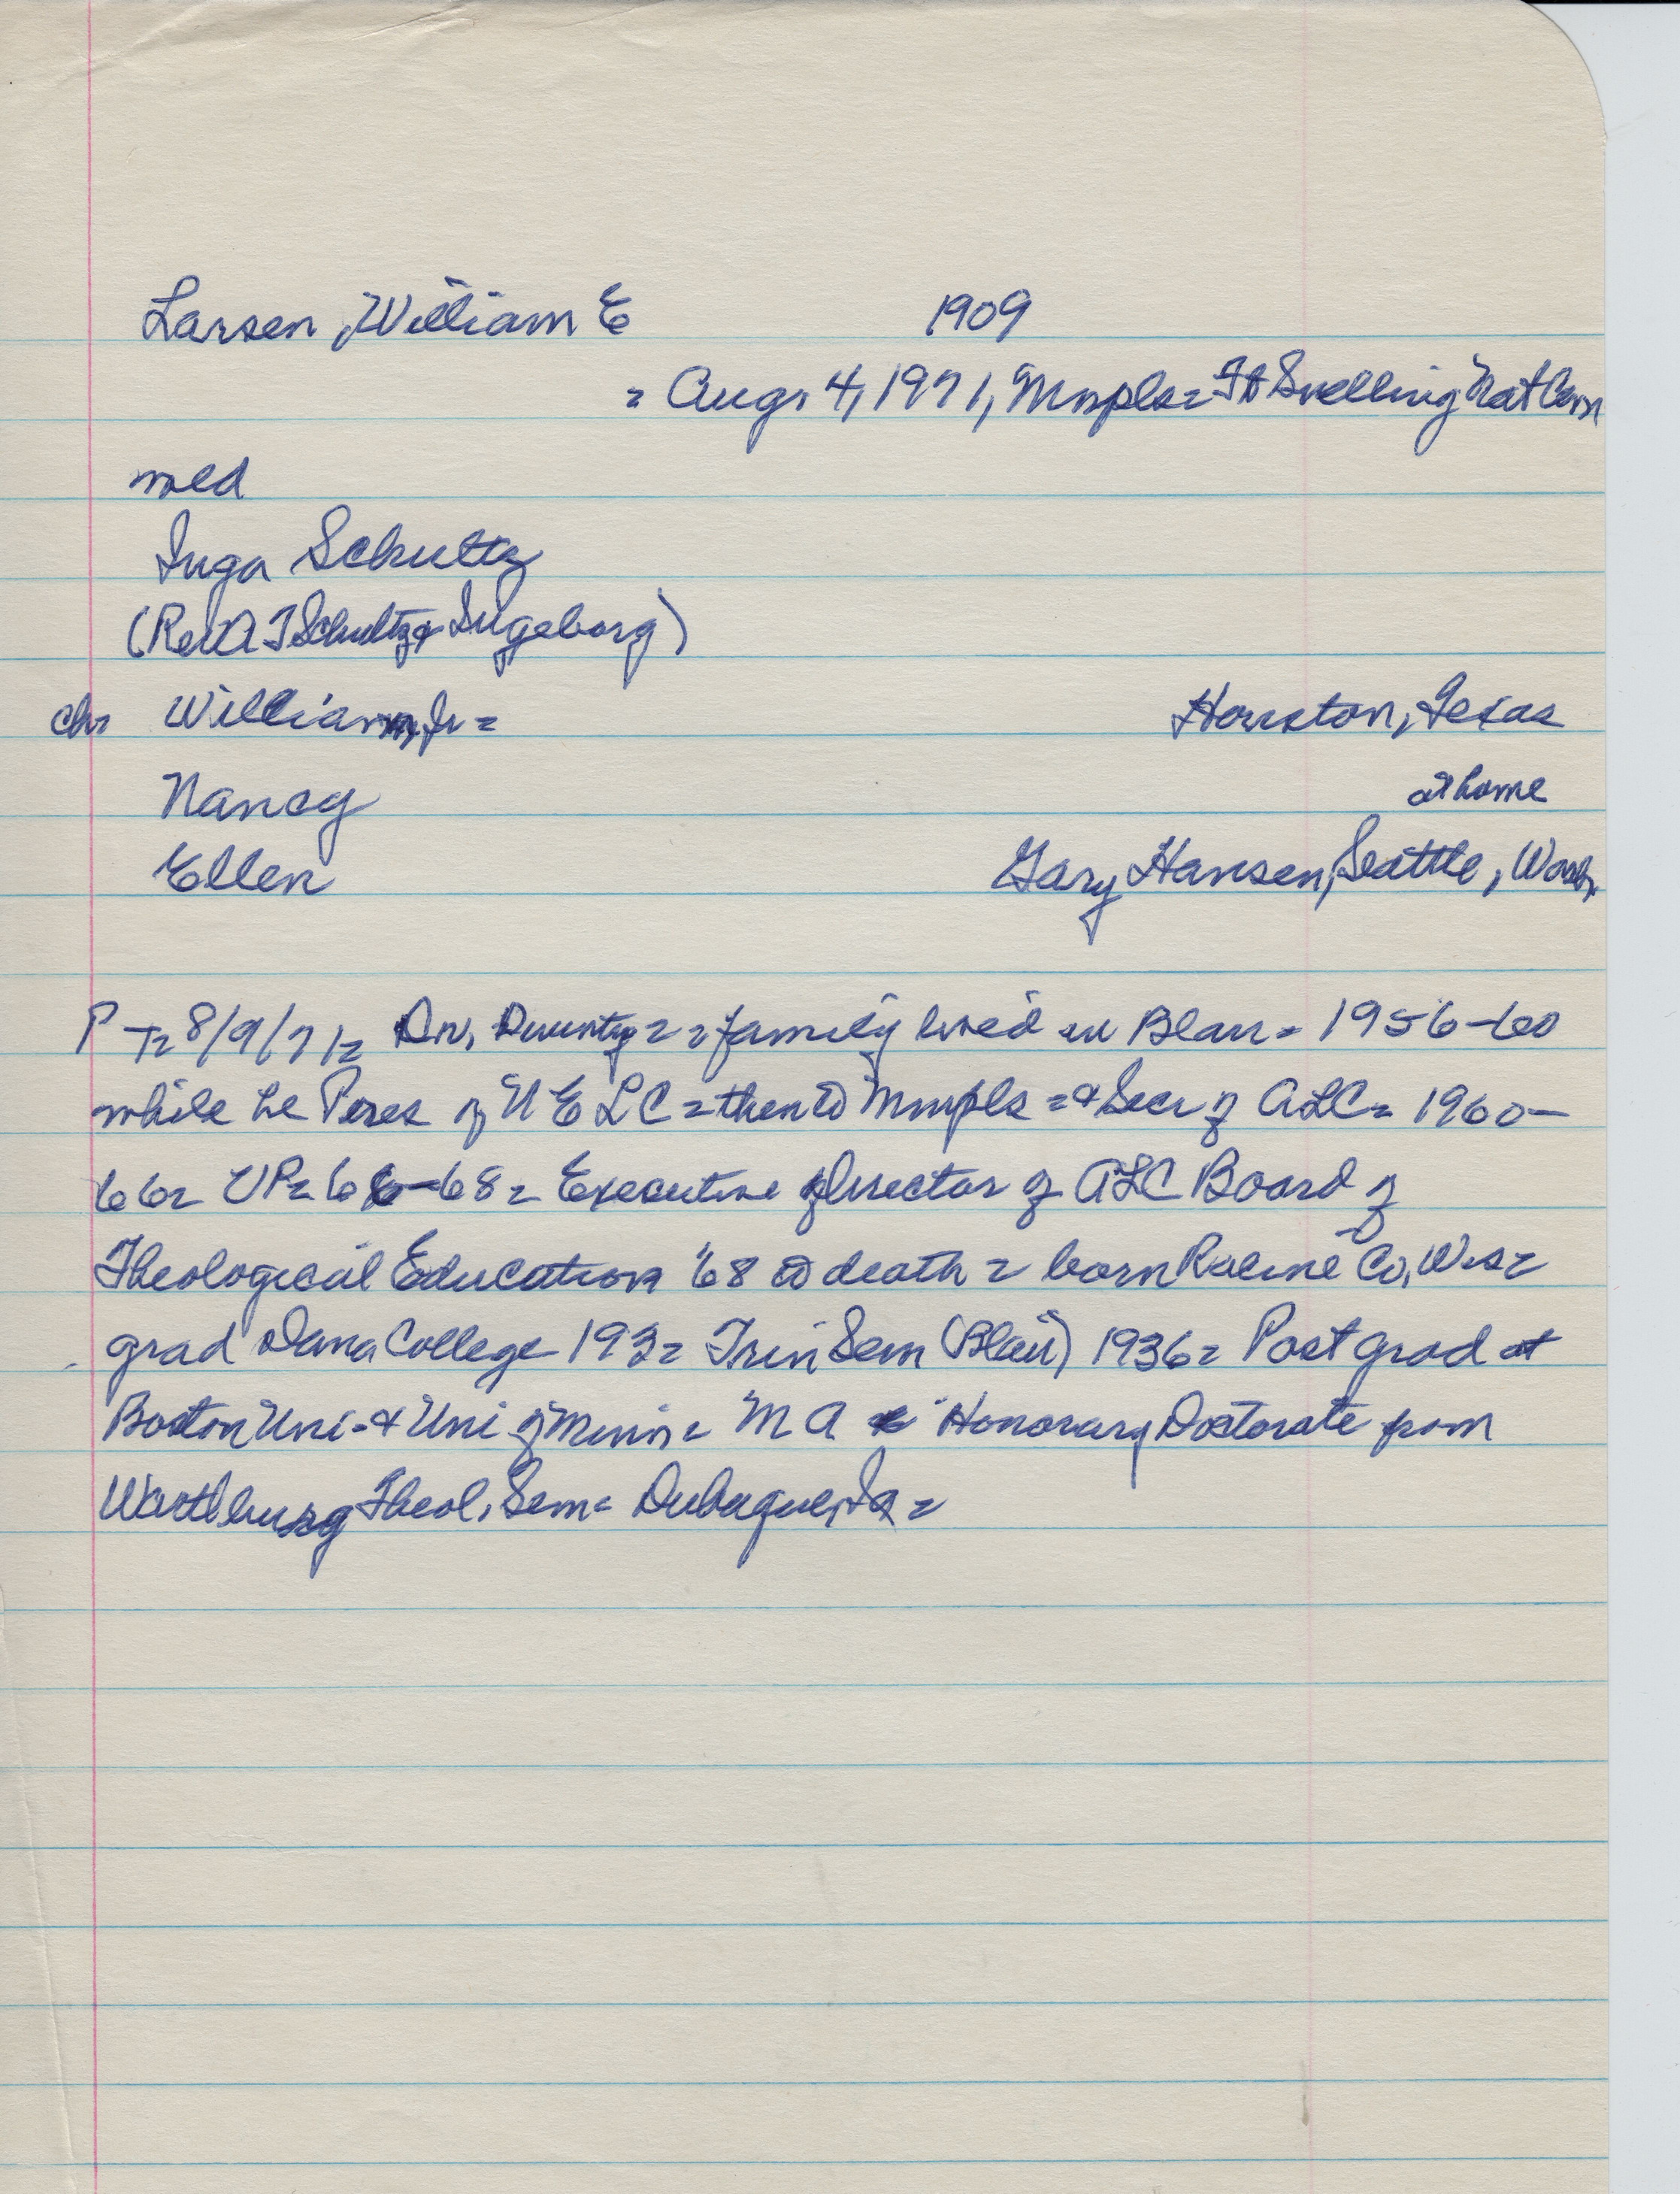 Larsen, William E 1909
= Aug. 4, 1971, Mnpls= Ft Snelling Nat Cem
med
Inga Schultz
(Rev A T Schultz & Ingeborg)
chr William, Jr = Houston, Texas
Nancy at home
Ellen Gary Hansen, Seattle, Wash.
P-T= 8/9/71= Dr, = = family lived in Blair= 1956-60
while he Pres of UELC = then to Mnpls = & Secr of ALC= 1960-
66= VP= 66-68= Executive Director of ALC Board of
Theological Education '68 to death = born Racine Co, Wis=
grad Dana College 193= Trin Sem (Blair) 1936= Post grad at
Boston Uni- & Uni of Minn= M A Honorary Doctorate from
Wartburg Theol, Sem= Dubuque, Ia =